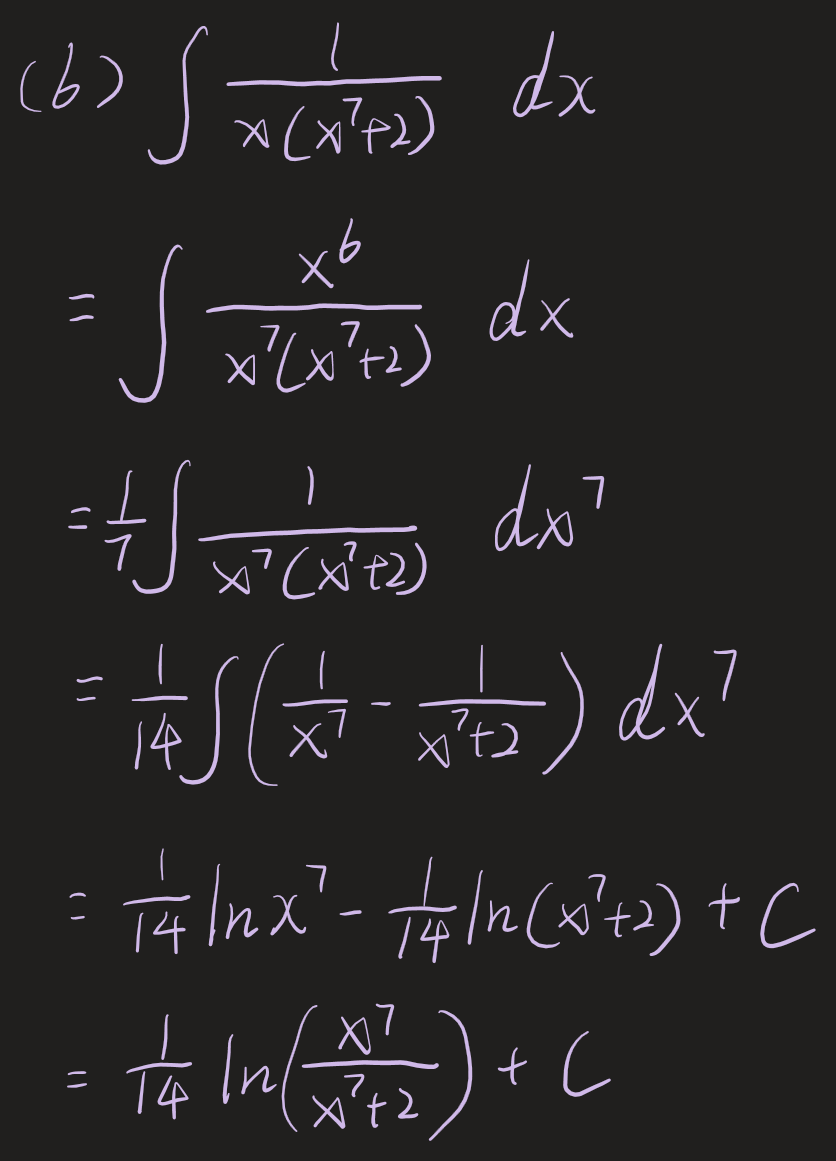 (b) ∫ 1/(x(x⁷+2)) dx
= ∫ x⁶/(x⁷(x⁷+2)) dx
= 1/7 ∫ 1/(x⁷(x⁷+2)) dx⁷
= 1/14 ∫ (1/x⁷ - 1/(x⁷+2)) dx⁷
= 1/14 ln x⁷ - 1/14 ln(x⁷+2) + C
= 1/14 ln(x⁷/(x⁷+2)) + C